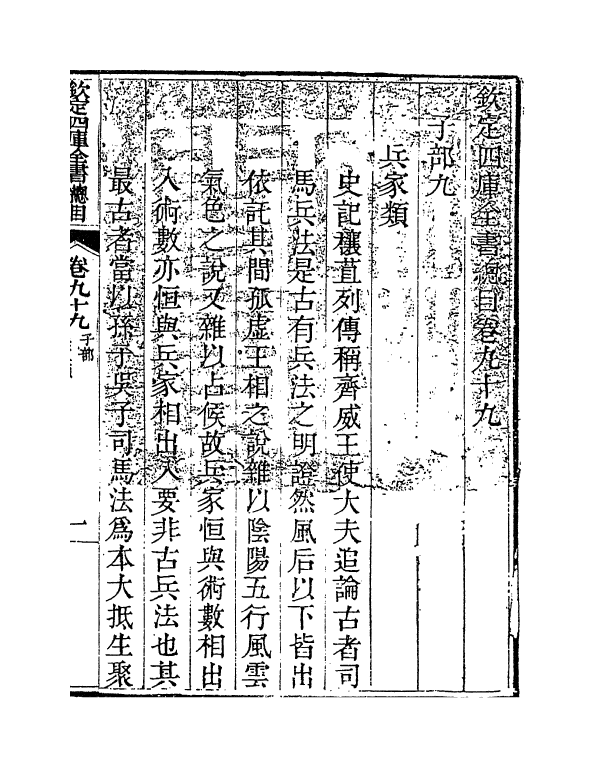 欽定四庫全書總目卷九十九
子部九
兵家類
史記穰苴列傳稱齊威王使大夫追論古者司
馬兵法是古有兵法之明證然風后以下皆出
依託其間孤虛王相之說雜以陰陽五行風雲
氣色之說又雜以占候故兵家恒與術數相出
入術數亦恒與兵家相出入要非古兵法也其
最古者當以孫子吳子司馬法爲本大抵生聚
欽定四庫全書總目
卷九十九
子部
一